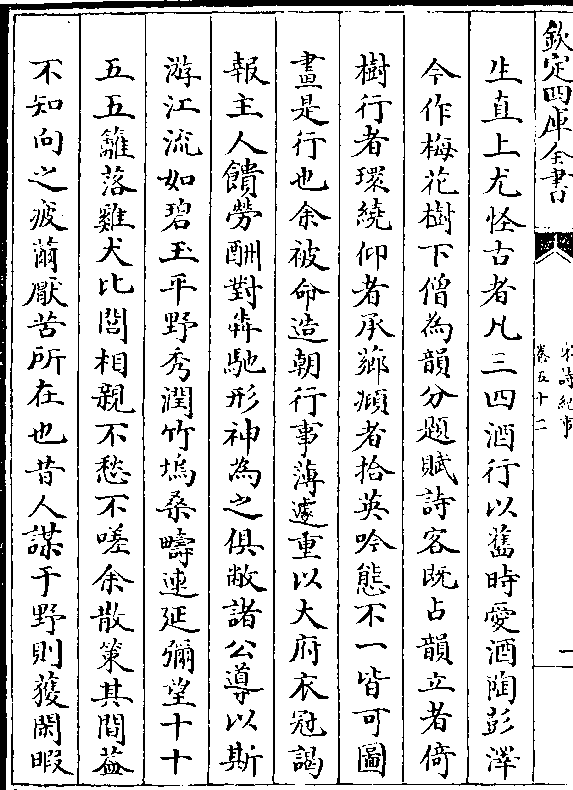 欽定四庫全書
宋詩紀事
卷五十二
生直上尤怪古者凡三四酒行以舊時愛酒陶彭澤
今作梅花樹下僧為韻分題賦詩客既占韻立者倚
樹行者環繞仰者承蕊頫者拾英吟態不一皆可圖
畫是行也余被命造朝行事薄遽重以大府衣冠謁
報主人饋勞酬對犇馳形神為之俱敝諸公導以斯
游江流如碧玉平野秀潤竹塢桑疇連延彌望十十
五五籬落雞犬比閭相親不愁不嗟余散策其間蓋
不知向之疲薾厭苦所在也昔人謀于野則獲閑暇